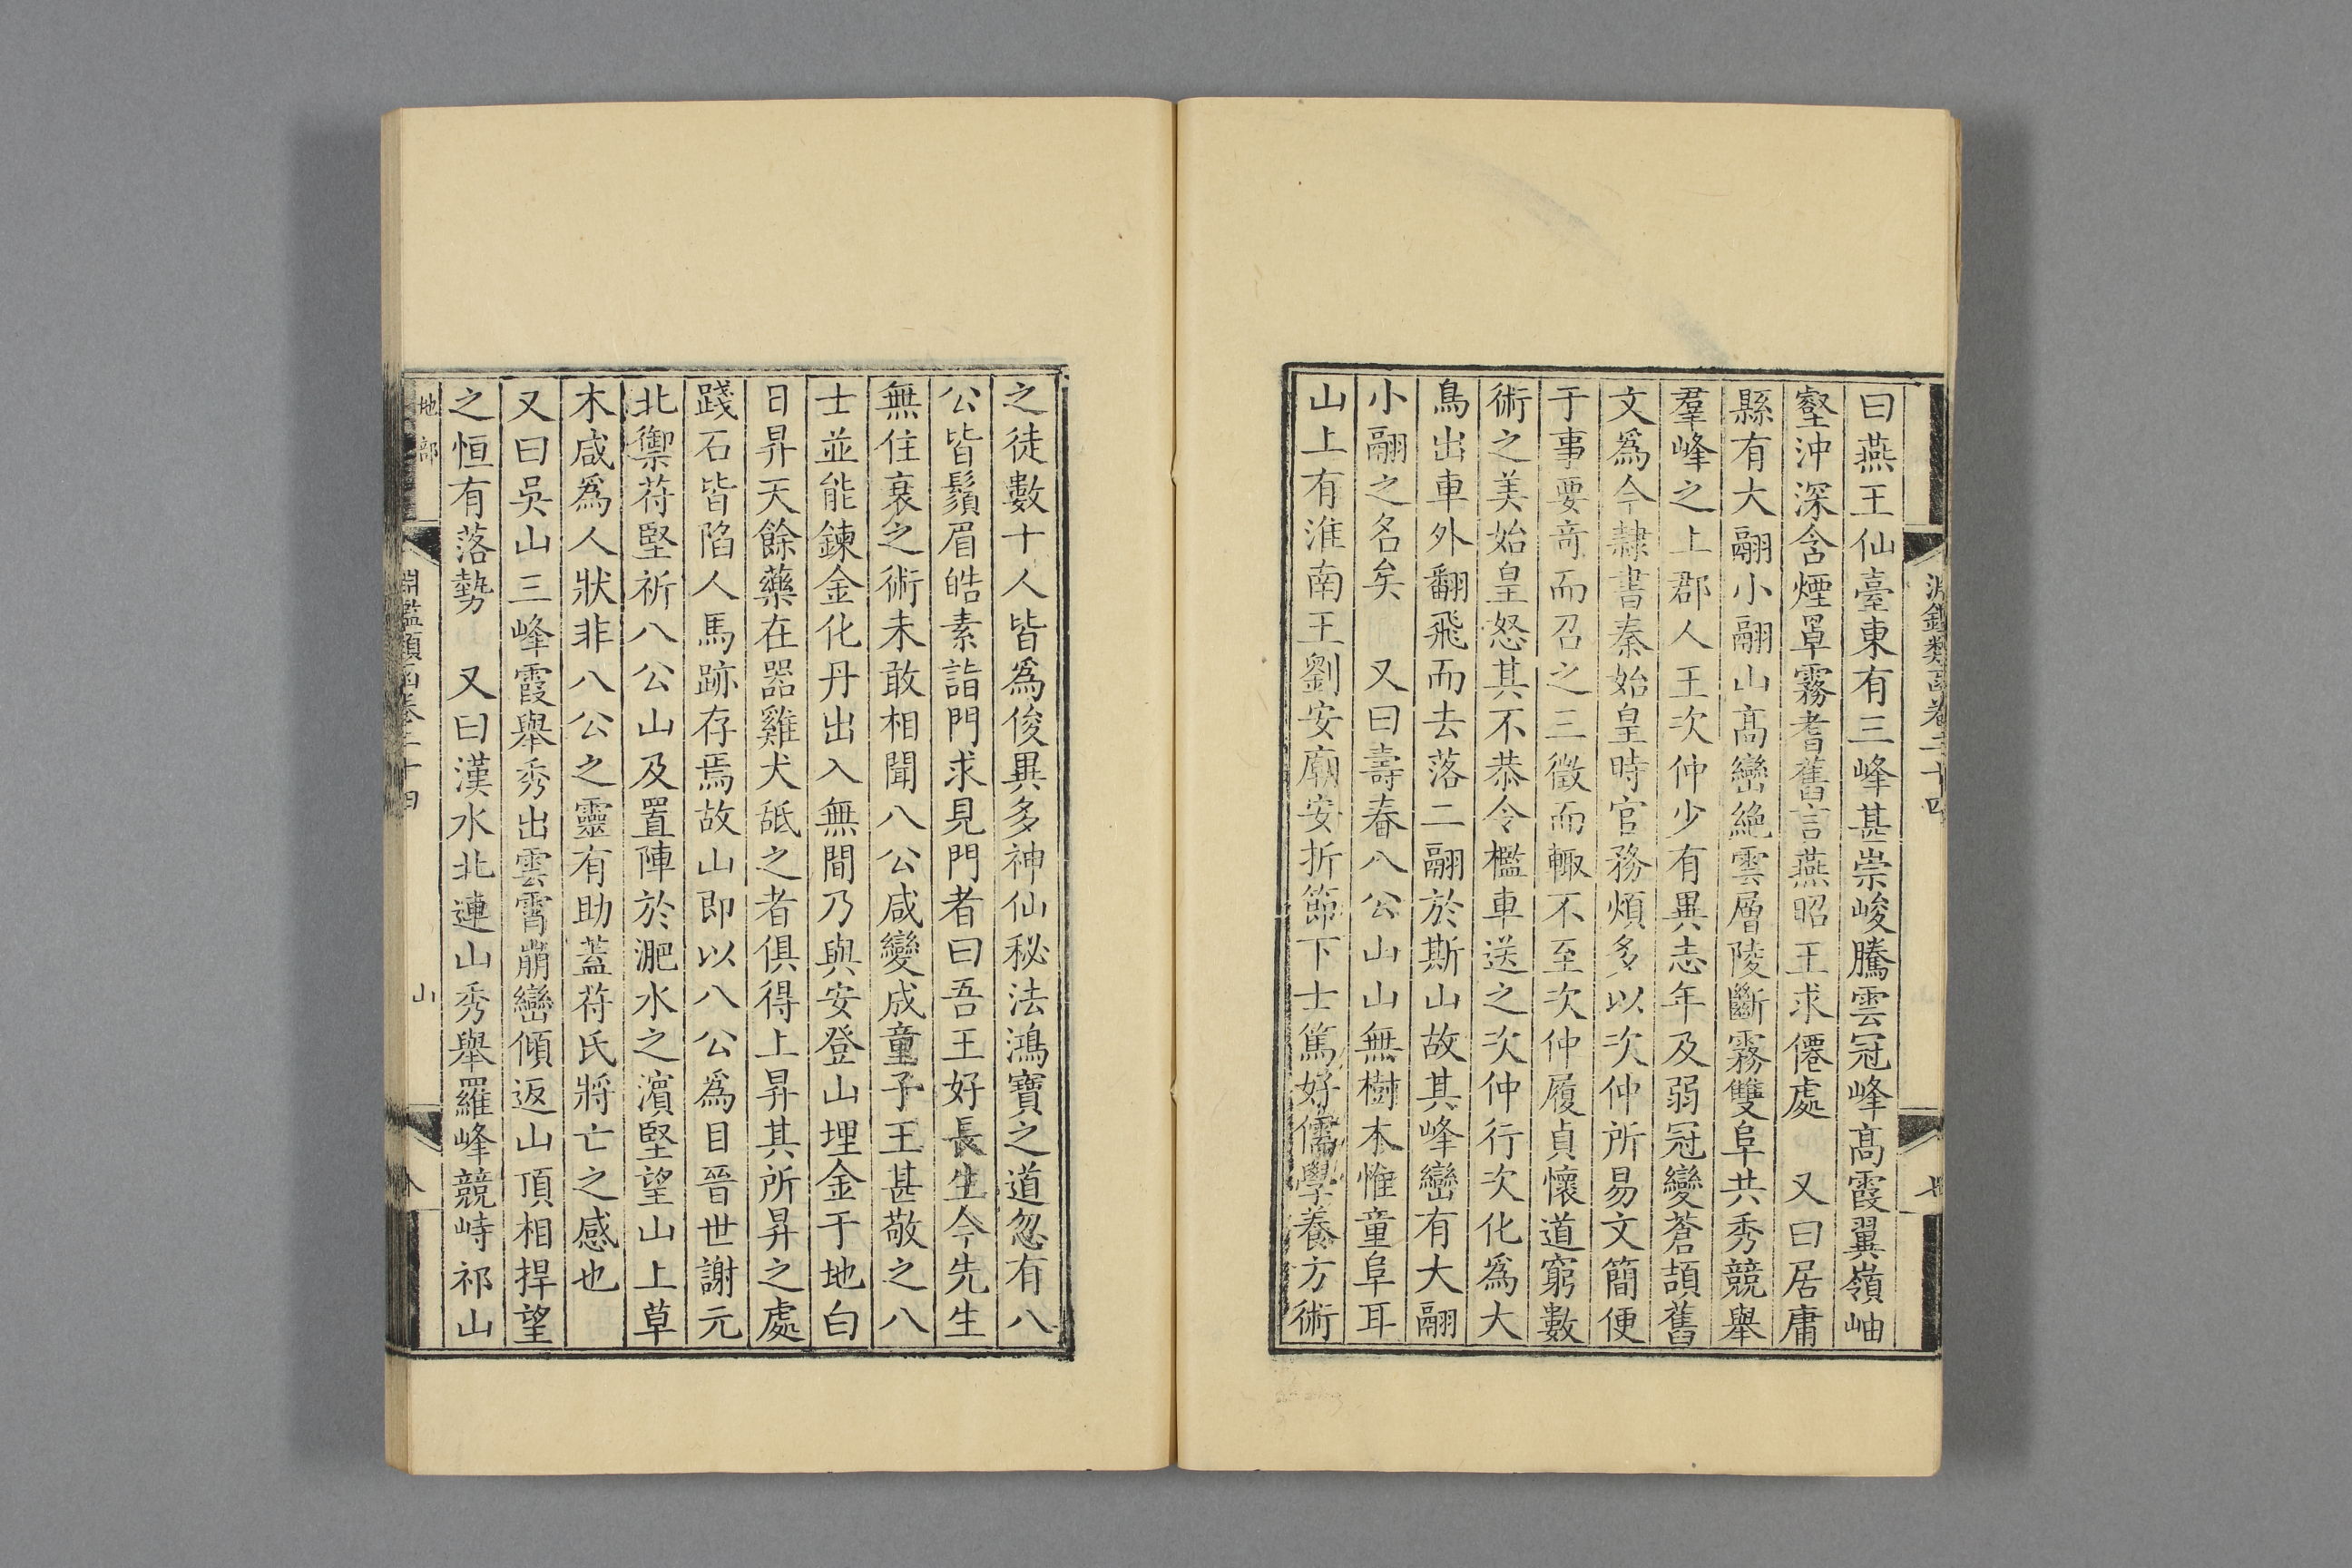 淵鑑類函卷二十四
七
曰燕王仙臺東有三峰甚崇峻騰雲冠峰髙霞翼嶺岫
壑沖深含煙罩霧耆舊言燕昭王求僊處　又曰居庸
縣有大翮小翮山髙巒絶雲層陵斷霧雙阜共秀競舉
羣峰之上郡人王次仲少有異志年及弱冠變蒼頡舊
文爲今隷書秦始皇時官務煩多以次仲所易文簡便
于事要竒而召之三徵而輙不至次仲履貞懷道窮數
術之美始皇怒其不恭令檻車送之次仲行次化爲大
鳥出車外翻飛而去落二翮於斯山故其峰巒有大翮
小翮之名矣　又曰壽春八公山山無樹木惟童阜耳
山上有淮南王劉安廟安折節下士篤好儒學養方術
之徒數十人皆爲俊異多神仙秘法鴻寶之道忽有八
公皆鬚眉皓素詣門求見門者曰吾王好長生今先生
無住衰之術未敢相聞八公咸變成童子王甚敬之八
士並能鍊金化丹出入無間乃與安登山埋金于地白
日昇天餘藥在器雞犬䑛之者俱得上昇其所昇之處
踐石皆陷人馬跡存焉故山即以八公爲目晉世謝元
北禦苻堅祈八公山及置陣於淝水之濵堅望山上草
木咸爲人狀非八公之靈有助蓋苻氏將亡之感也
又曰吳山三峰霞舉秀出雲霄崩巒傾返山頂相捍望
之恒有落勢　又曰漢水北連山秀舉羅峰競峙祁山
地部
淵鑑類函卷二十四
山
八